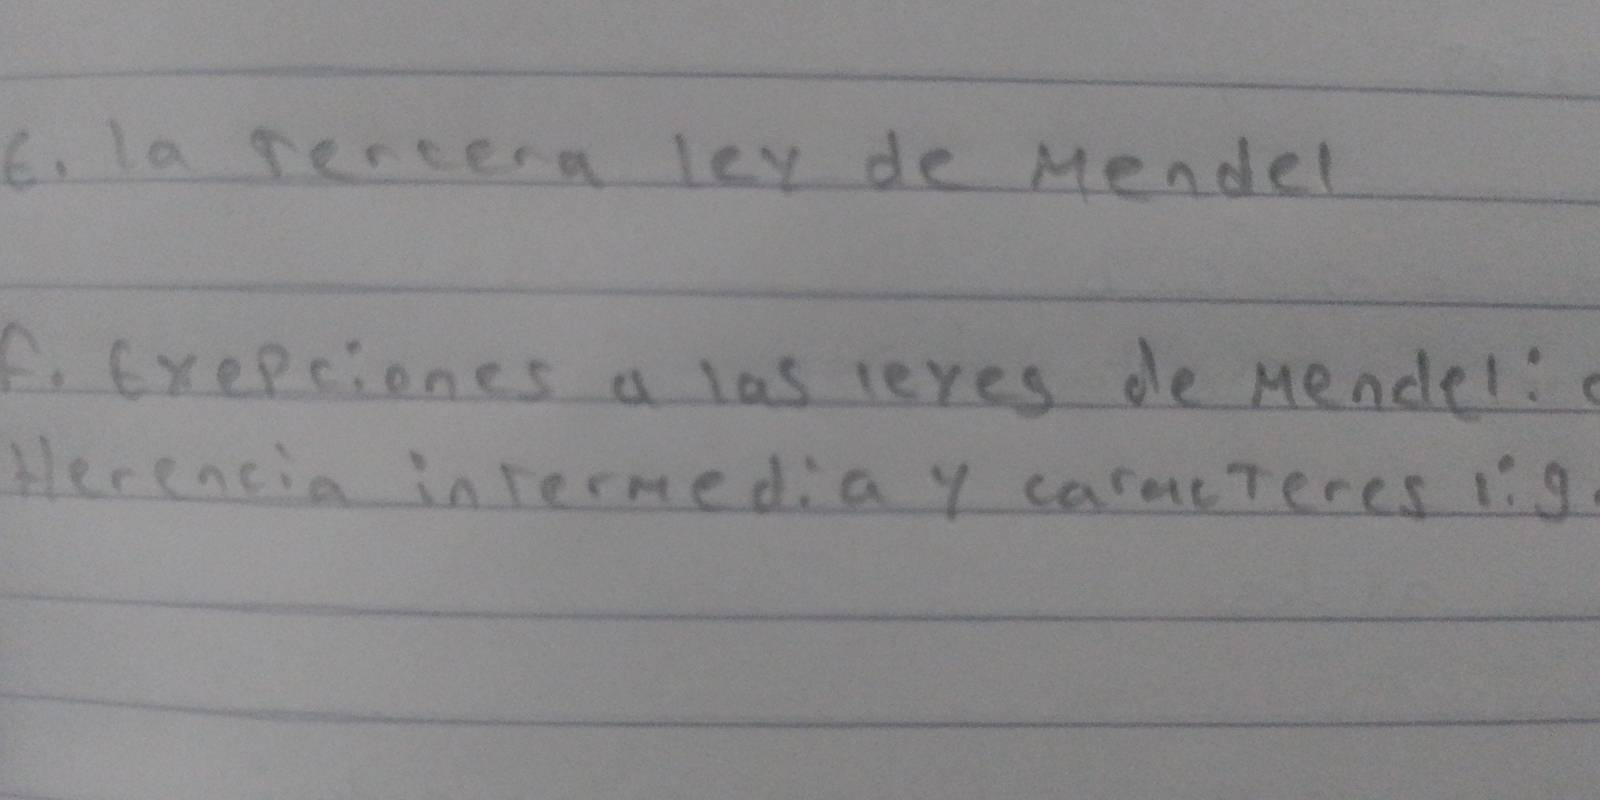 E. la Tercera ley de Mendel
F. Exepciones a las leyes de Mendel:
Herencia intermedia y caracteres lig